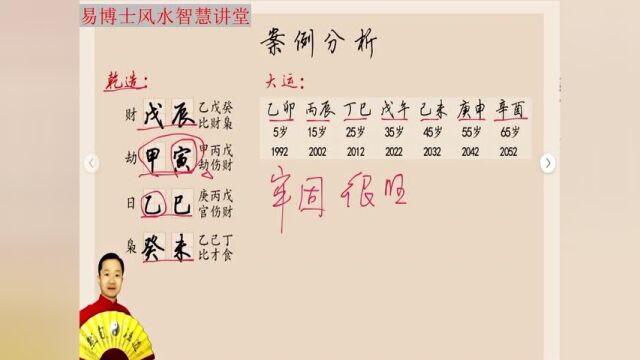 易博士风水智慧讲堂
案例分析
乾造：
财 戊辰 乙戊癸
比财枭
劫 甲寅 甲丙戊
劫伤财
日 乙巳 庚丙戊
官伤财
枭 癸未 乙己丁
比才食
大运：
乙卯 丙辰 丁巳 戊午 己未 庚申 辛酉
5岁 15岁 25岁 35岁 45岁 55岁 65岁
1992 2002 2012 2022 2032 2042 2052
牢固 很旺